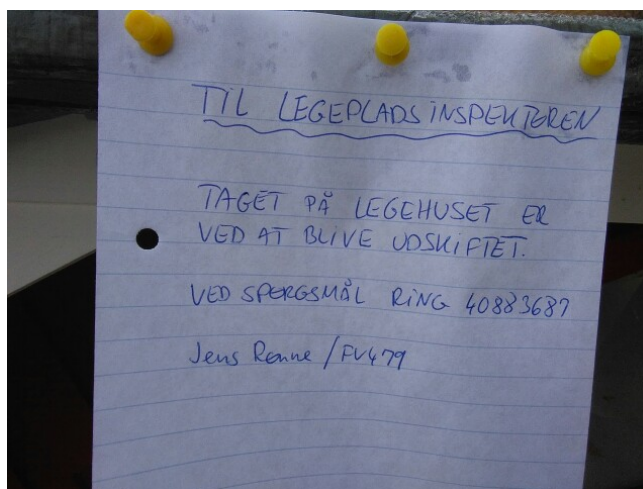 TIL LEGEPLADSINSPEKTØREN
TAGET PÅ LEGEHUSET ER
VED AT BLIVE UDSKIFTET.
VED SPØRGSMÅL RING 40883687
Jens Rønne / FV479